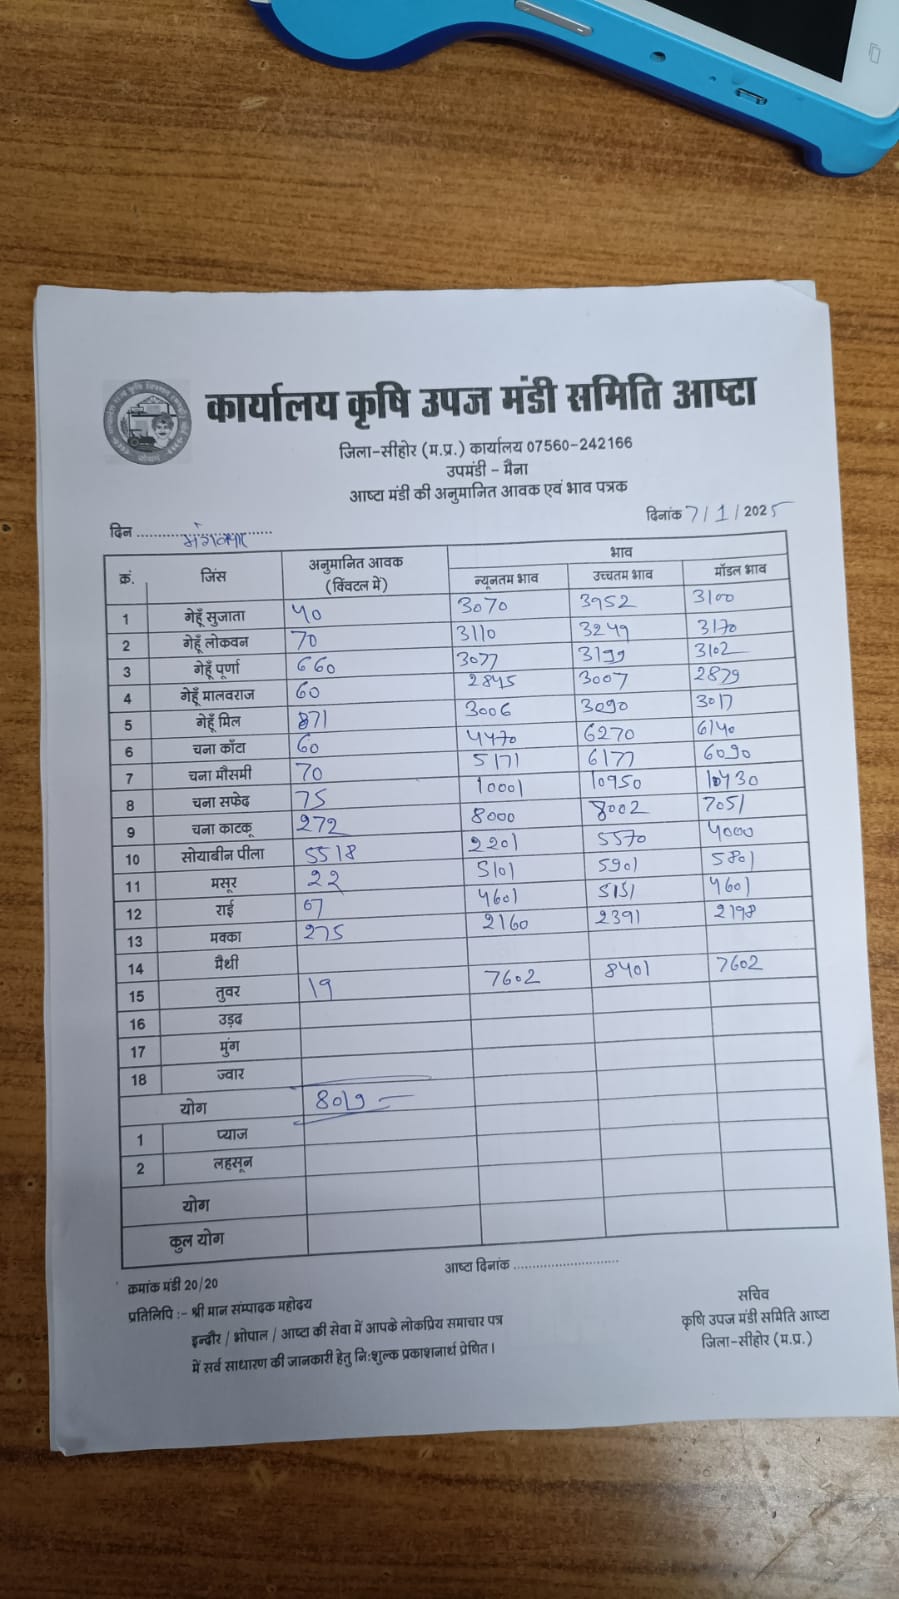 कार्यालय कृषि उपज मंडी समिति आष्टा
जिला-सीहोर (म.प्र.) कार्यालय 07560-242166
उपमंडी - मैना
आष्टा मंडी की अनुमानित आवक एवं भाव पत्रक
दिन ........ मंगलवार दिनांक 7/1/2025
क्रं. जिंस अनुमानित आवक (क्विंटल में) भाव
न्यूनतम भाव उच्चतम भाव मॉडल भाव
1 गेहूँ सुजाता 40 3070 3952 3100
2 गेहूँ लोकवन 70 3110 3249 3170
3 गेहूँ पूर्णा 660 3077 3199 3102
4 गेहूँ मालवराज 60 2845 3007 2879
5 गेहूँ मिल 871 3006 3090 3017
6 चना काँटा 60 4470 6270 6140
7 चना मौसमी 70 5171 6177 6090
8 चना सफेद 75 10001 10950 10430
9 चना काटकू 272 8000 8002 7051
10 सोयाबीन पीला 5518 2201 5570 4000
11 मसूर 22 5101 5901 5801
12 राई 07 4601 5151 4601
13 मक्का 275 2160 2391 2198
14 मैथी
15 तुवर 19 7602 8401 7602
16 उड़द
17 मुंग
18 ज्वार
योग 8019
1 प्याज
2 लहसून
योग
कुल योग
आष्टा दिनांक ............................
क्रमांक मंडी 20/20
प्रतिलिपि :- श्री मान संम्पादक महोदय
इन्दौर / भोपाल / आष्टा की सेवा में आपके लोकप्रिय समाचार पत्र
में सर्व साधारण की जानकारी हेतु नि:शुल्क प्रकाशनार्थ प्रेषित।
सचिव
कृषि उपज मंडी समिति आष्टा
जिला-सीहोर (म.प्र.)